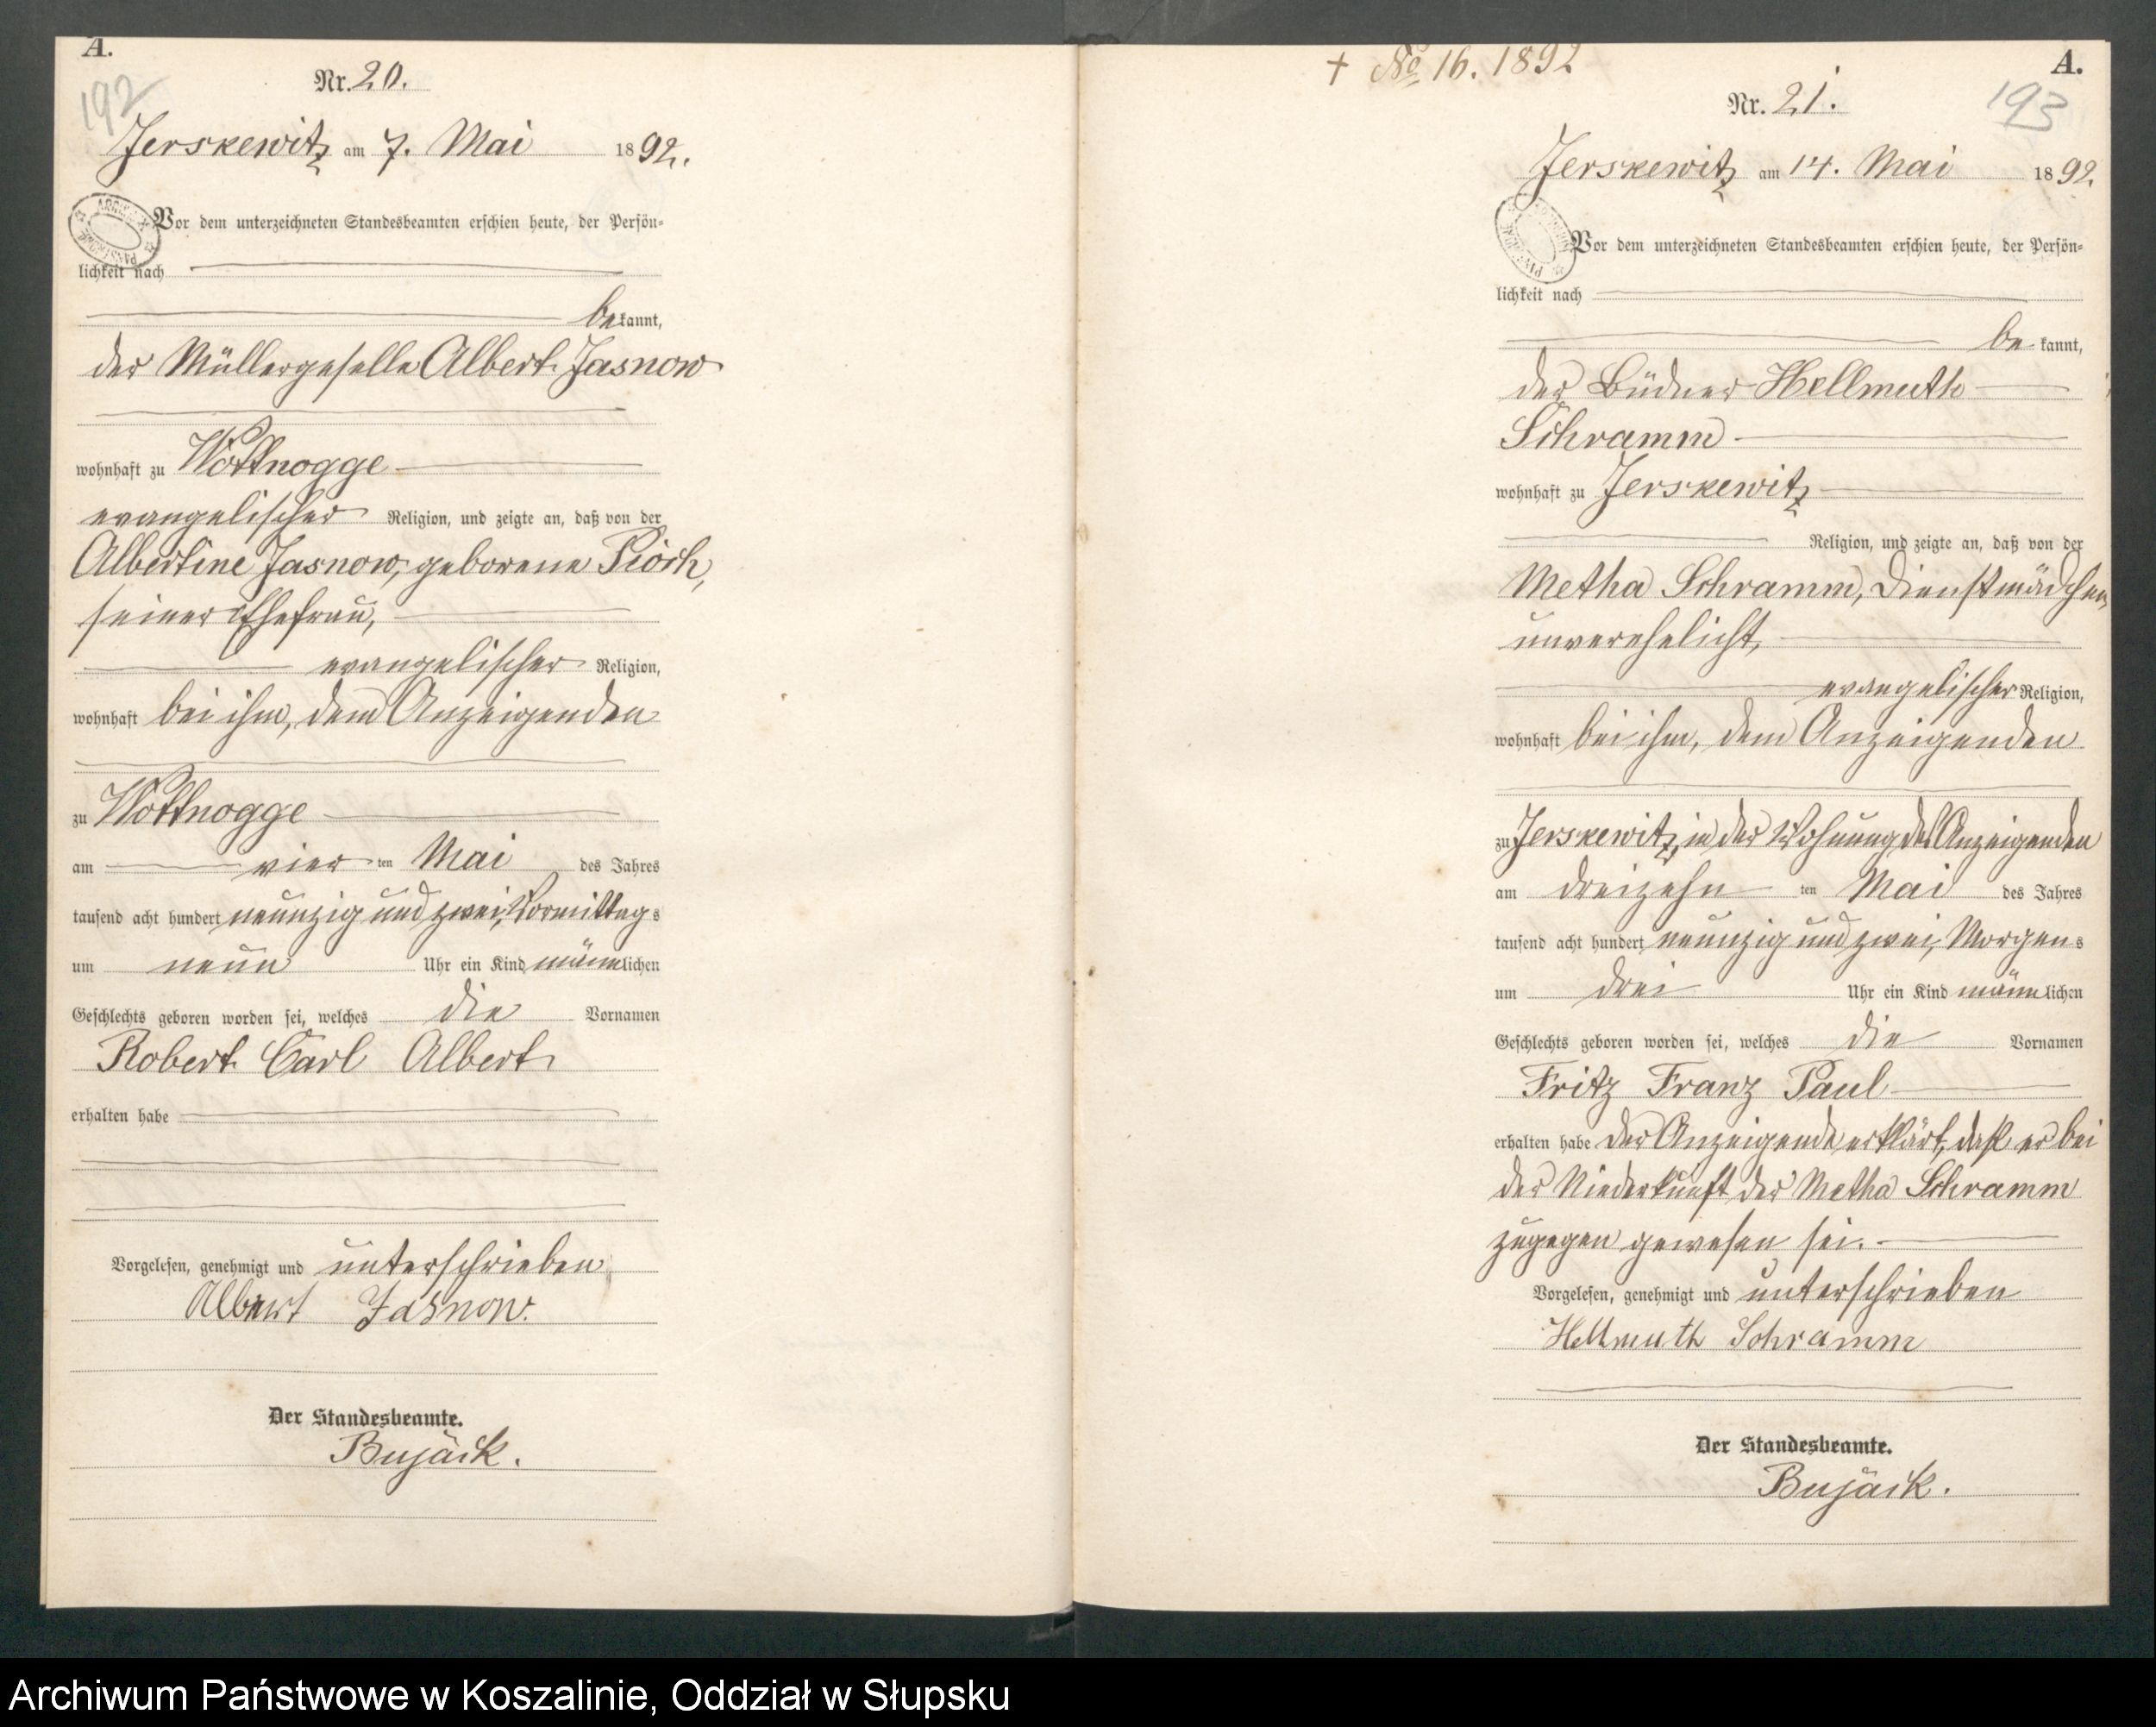 A.
192
Nr. 20.
Jerskewitz am 7. Mai 1892.
Vor dem unterzeichneten Standesbeamten erschien heute, der Persön-
lichkeit nach
bekannt,
der Müllergeselle Albert Jasnow
wohnhaft zu Wottnogge
evangelischer Religion, und zeigte an, daß von der
Albertine Jasnow, geborene Pioch,
seiner Ehefrau,
evangelischer Religion,
wohnhaft bei ihm, dem Anzeigenden
zu Wottnogge
am vier ten Mai des Jahres
tausend acht hundert neunzig und zwei, Vormittags
um neun Uhr ein Kind männlichen
Geschlechts geboren worden sei, welches die Vornamen
Robert Carl Albert
erhalten habe
Vorgelesen, genehmigt und unterschrieben
Albert Jasnow.
Der Standesbeamte.
Bujäck.
+ No 16. 1892
A.
193
Nr. 21.
Jerskewitz am 14. Mai 1892.
Vor dem unterzeichneten Standesbeamten erschien heute, der Persön-
lichkeit nach
be kannt,
der Büdner Hellmuth
Schramm
wohnhaft zu Jerskewitz
Religion, und zeigte an, daß von der
Metha Schramm, Dienstmädchen,
unverehelicht,
evangelischer Religion,
wohnhaft bei ihm, dem Anzeigenden
zu Jerskewitz, in der Wohnung des Anzeigenden
am dreizehn ten Mai des Jahres
tausend acht hundert neunzig und zwei, Morgens
um drei Uhr ein Kind männlichen
Geschlechts geboren worden sei, welches die Vornamen
Fritz Franz Paul
erhalten habe der Anzeigende erklärt, daß er bei
der Niederkunft der Metha Schramm
zugegen gewesen sei.
Vorgelesen, genehmigt und unterschrieben
Hellmuth Schramm
Der Standesbeamte.
Bujäck.
Archiwum Państwowe w Koszalinie, Oddział w Słupsku